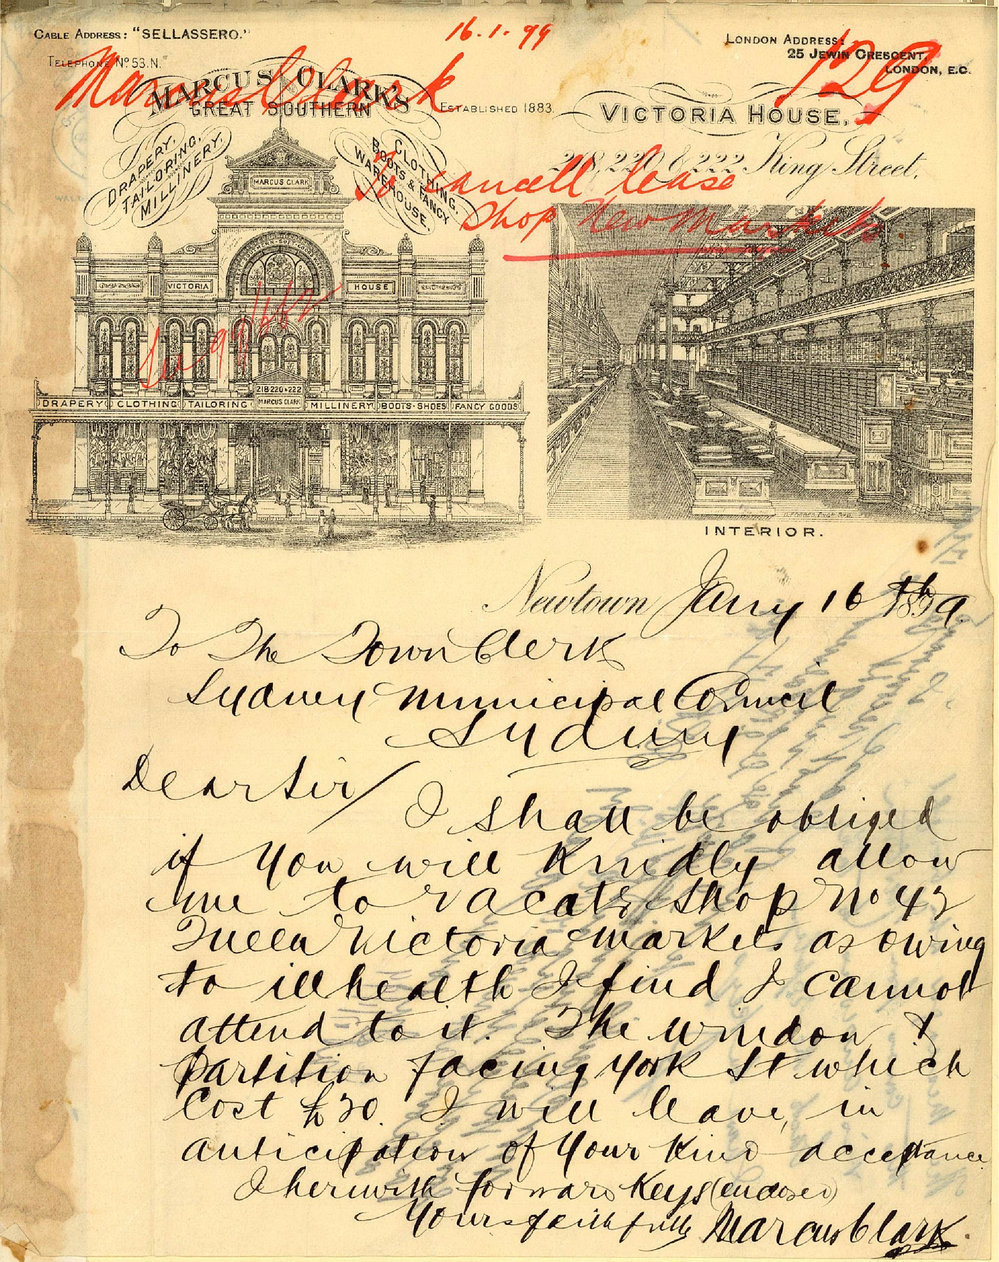 CABLE ADDRESS: "SELLASSERO."
TELEPHONE No 53.N.
16.1.99
LONDON ADDRESS:
25 JEWIN CRESCENT,
LONDON, E.C.
129
Marcus Clark
MARCUS CLARKS
GREAT SOUTHERN
DRAPERY,
TAILORING,
MILLINERY,
CLOTHING,
BOOTS & FANCY
WAREHOUSE.
ESTABLISHED 1883.
VICTORIA HOUSE,
218, 220 & 222 King Street,
To cancell lease
Shop New Markets
MARCUS CLARK
VICTORIA HOUSE
218·220·&·222
MARCUS CLARK
DRAPERY CLOTHING TAILORING MILLINERY BOOTS·SHOES FANCY GOODS
INTERIOR.
Newtown Jany 16th 1899.
To The Town Clerk
Sydney Municipal Council
Sydney
Dear Sir/
I shall be obliged
if you will Kindly allow
me to vacate shop No 42
Queen Victoria Markets as owing
to ill health I find I cannot
attend to it. The window &
partition facing York St which
cost £20. I will leave, in
anticipation of your kind acceptance
I herewith forward Keys (enclosed)
Yours faithfully Marcus Clark.